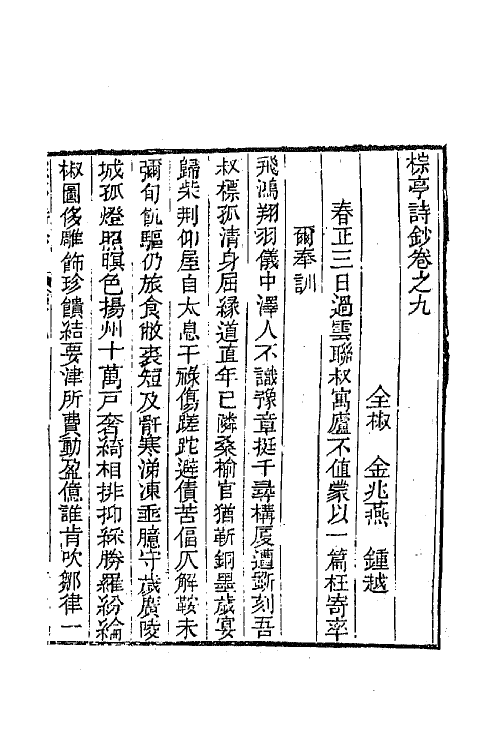 棕亭詩鈔卷之九
全椒　金兆燕　鍾越
春正三日過雲聯叔寓廬不值蒙以一篇枉寄率
爾奉訓
飛鴻翔羽儀中澤人不識豫章挺千尋構厦遭斲刻吾
叔標孤清身屈緣道直年已隣桑榆官猶靳銅墨歲宴
歸柴荆仰屋自太息干祿傷蹉跎避債苦偪仄解鞍未
彌旬飢驅仍旅食敝裘短及骭寒涕凍垂臆守歲廣陵
城孤燈照暝色揚州十萬戸奢綺相排抑綵勝羅紛綸
椒圖侈雕飾珍饋結要津所費動盈億誰肯吹鄒律一